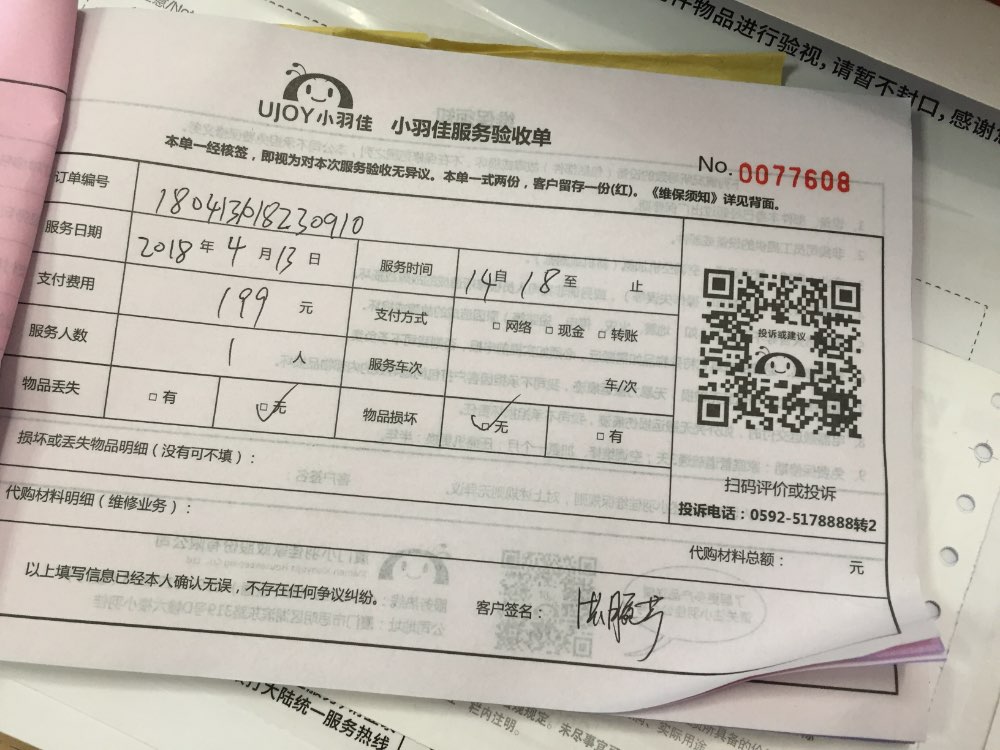 件物品进行验视，请暂不封口，感谢
UJOY小羽佳 小羽佳服务验收单
No. 0077608
本单一经核签，即视为对本次服务验收无异议。本单一式两份，客户留存一份(红)。《维保须知》详见背面。
订单编号 180413618230910
服务日期 2018 年 4 月 13 日 服务时间 14自 18至 止
支付费用 199 元 支付方式 □ 网络 □ 现金 □ 转账
服务人数 1 人 服务车次 车/次
物品丢失 □ 有 □ 无 物品损坏 □ 无 □ 有
投诉或建议
扫码评价或投诉
投诉电话：0592-5178888转2
损坏或丢失物品明细（没有可不填）：
代购材料明细（维修业务）：
代购材料总额： 元
以上填写信息已经本人确认无误，不存在任何争议纠纷。
客户签名：
大陆统一服务热线
栏内注明。